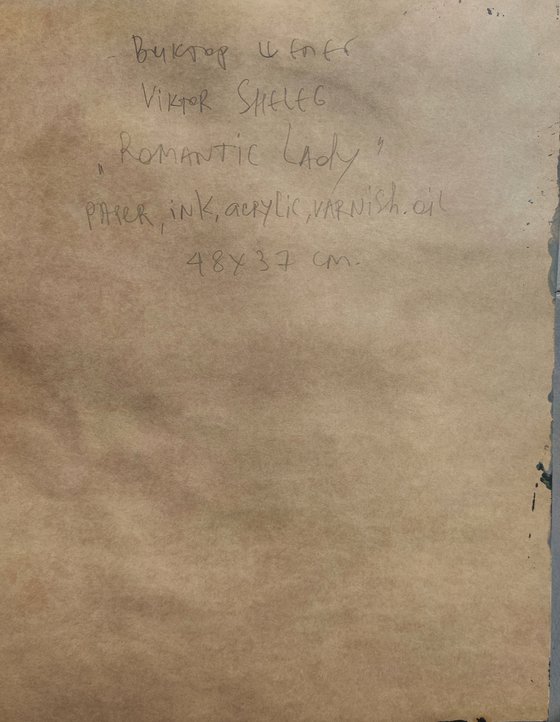 Виктор Шелег
VIKTOR SHELEG
„ROMANTIC LADY"
PAPER, iNK, acrylic, VARNish. oil
48x37 cm.